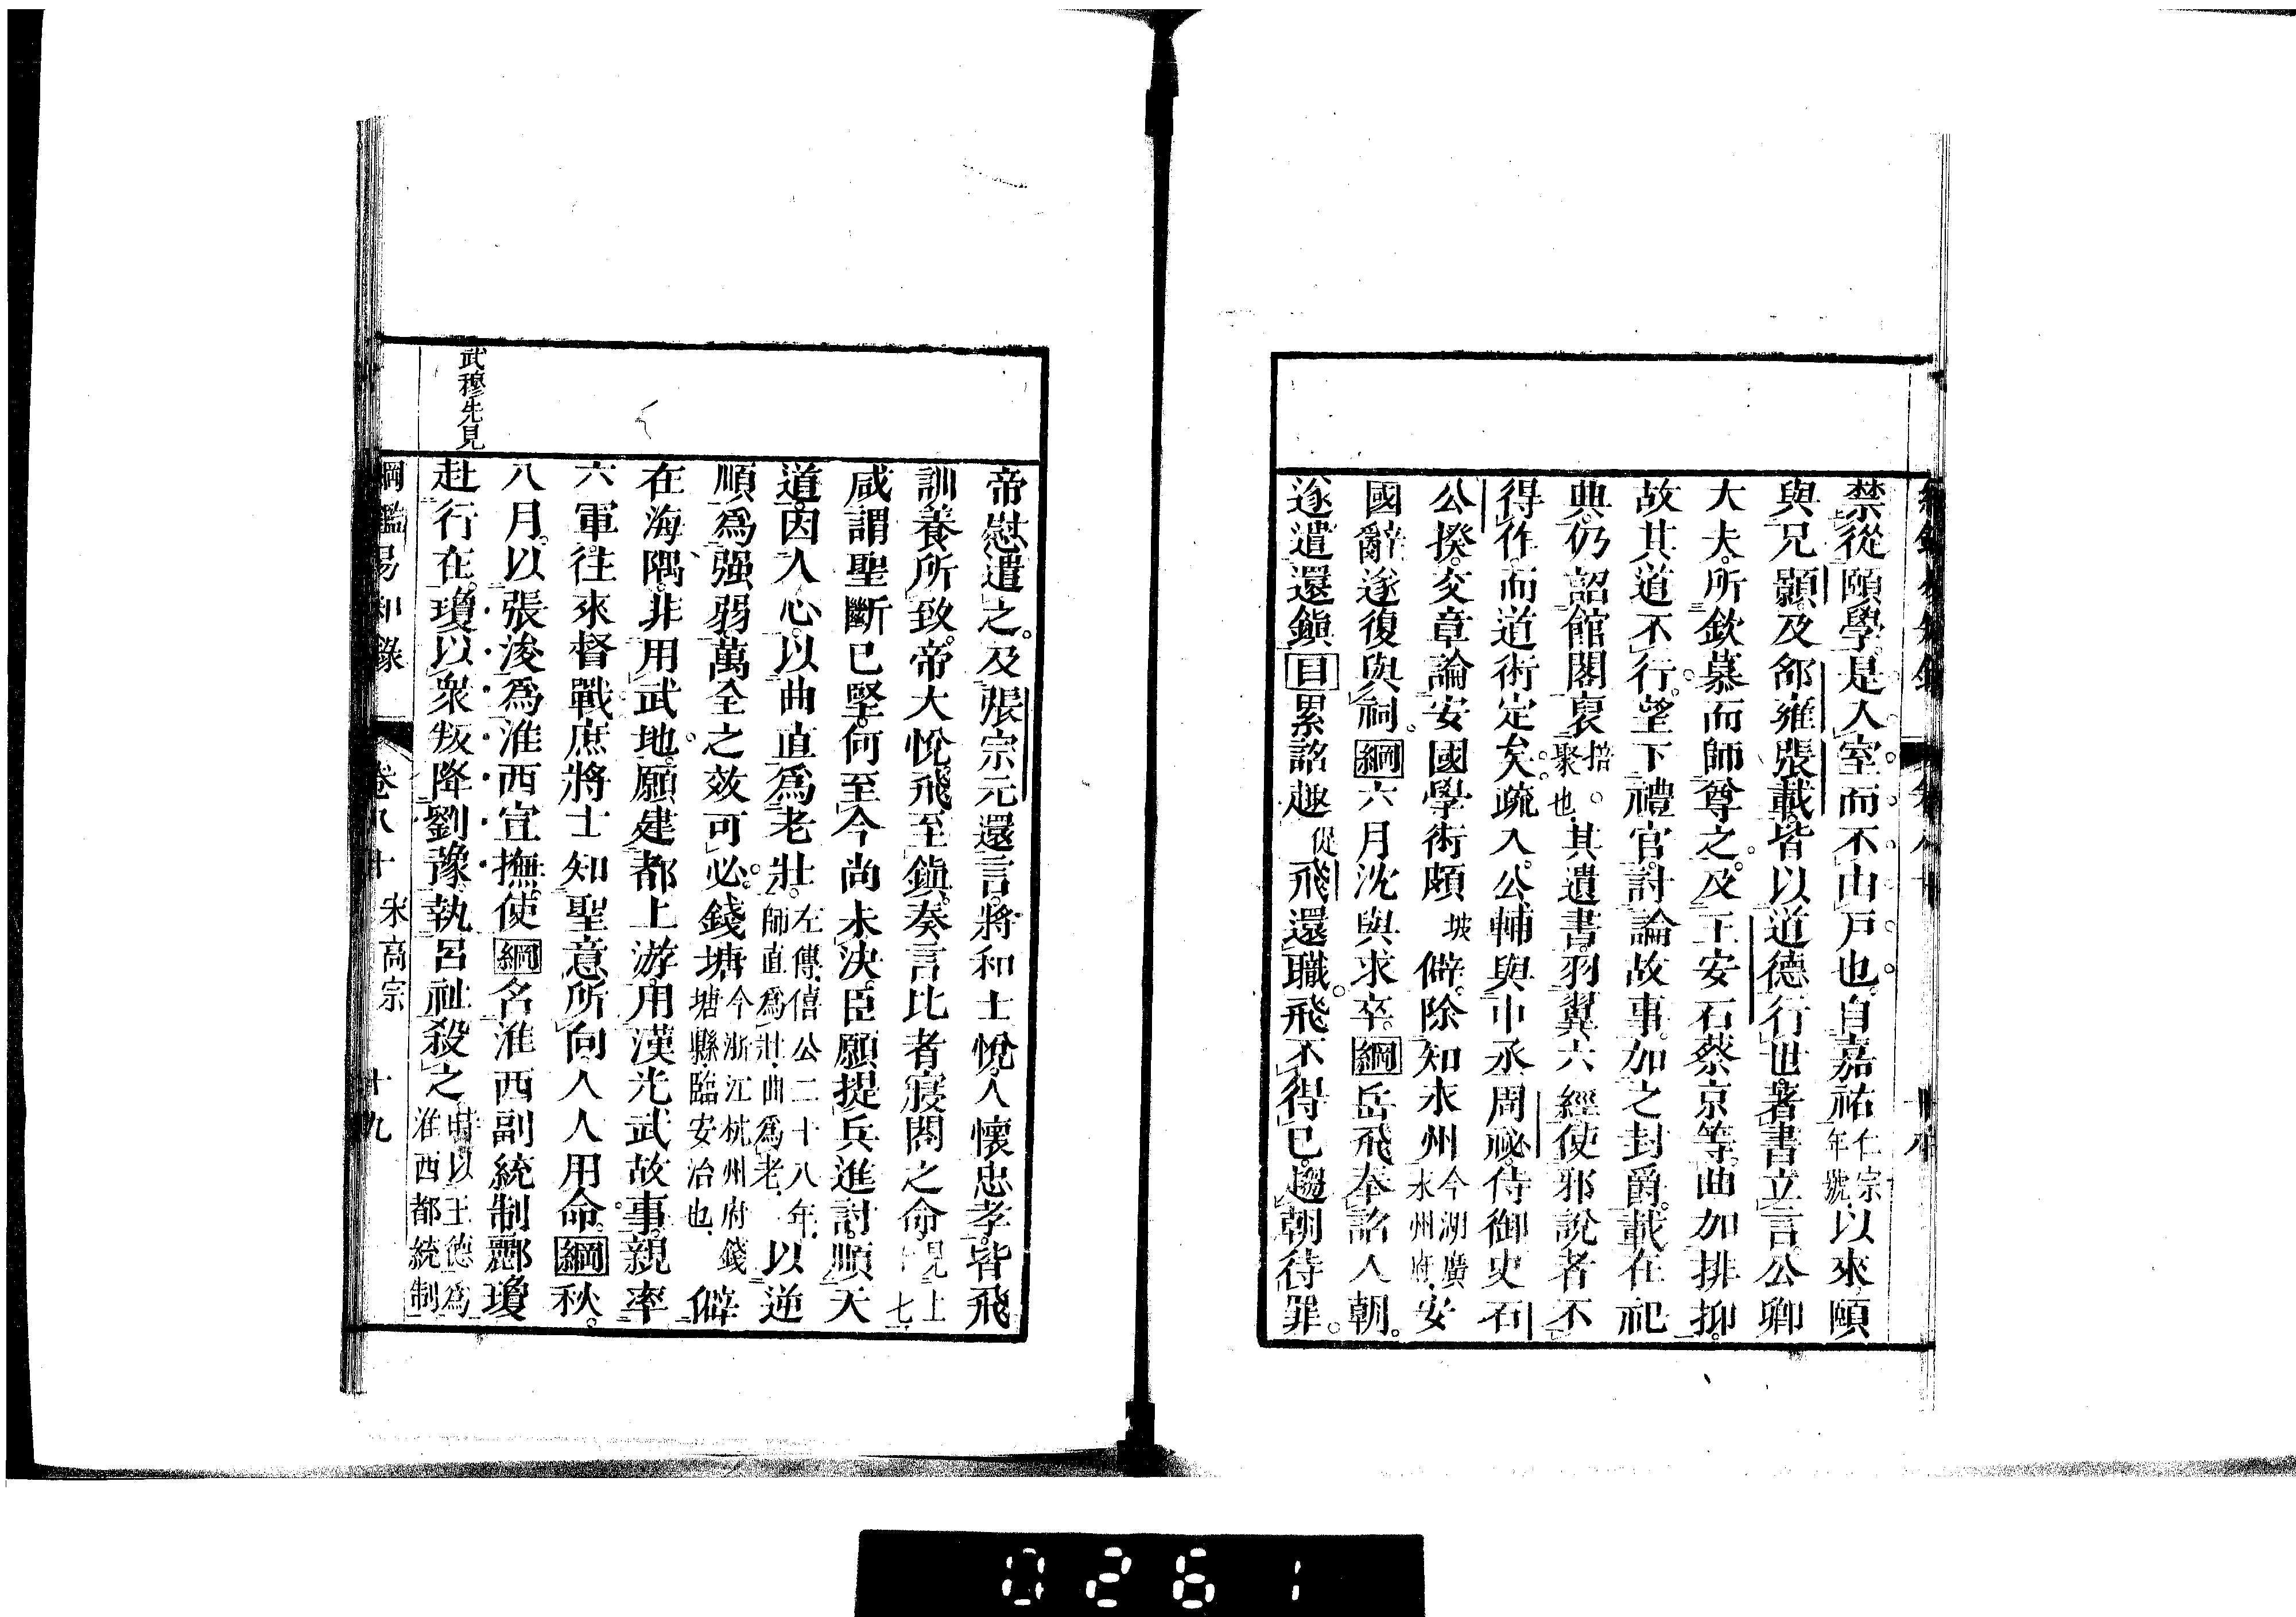 禁從頤學是入室而不由戶也自嘉祐仁宗年號以來頤
與兄顥及邵雍張載皆以道德行世著書立言公卿
大夫所欽慕而師尊之及王安石蔡京等曲加排抑
故其道不行望下禮官討論故事加之封爵載在祀
典仍詔館閣裒掊聚也其遺書羽翼六經使邪說者不
得作而道術定矣疏入公輔與中丞周祕侍御史石
公揆交章論安國學術頗坡僻除知永州今湖廣永州府安
國辭遂復與祠綱六月沈與求卒綱岳飛奉詔入朝
遂遣還鎮目累詔趣從飛還職飛不得已趨朝待罪
帝慰遣之及張宗元還言將和士悅人懷忠孝皆飛
訓養所致帝大悅飛至鎮奏言比者寢閤之命見上七
咸謂聖斷已堅何至今尚未決臣願提兵進討順天
道因人心以曲直為老壯左傳僖公二十八年師直為壯曲為老以逆
順為强弱萬全之效可必錢塘今浙江杭州府錢塘縣臨安治也僻
在海隅非用武地願建都上游用漢光武故事親率
六軍往來督戰庶將士知聖意所向人人用命綱秋
八月以張浚為淮西宣撫使綱召淮西副統制酈瓊
赴行在瓊以衆叛降劉豫執呂祉殺之時以王德為淮西都統制
武穆先見
綱鑑易知錄 卷八十 宋高宗 十九
0261